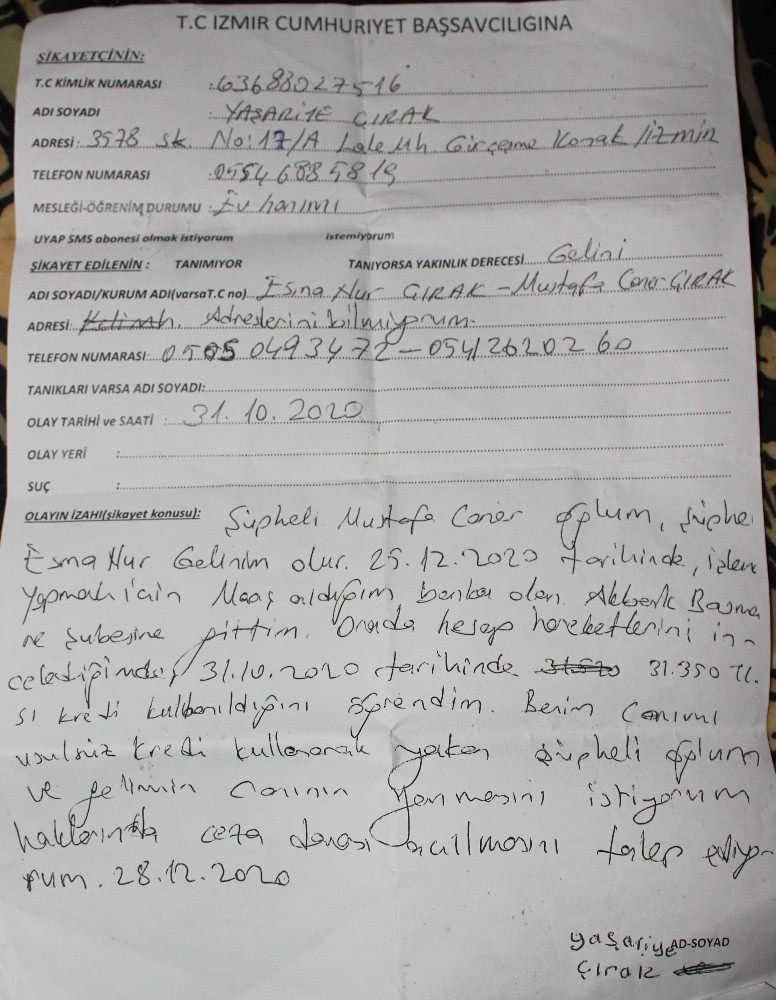 T.C IZMIR CUMHURIYET BAŞSAVCILIGINA
ŞİKAYETÇİNİN:
T.C KİMLİK NUMARASI :63688027516
ADI SOYADI : YAŞARİYE ÇIRAK
ADRESİ: 3578 sk. No:17/A Lale Mh. Girçeşme Konak/İzmir
TELEFON NUMARASI :05546885819
MESLEĞİ-ÖĞRENİM DURUMU : Ev hanımı
UYAP SMS abonesi olmak istiyorum istemiyorum
ŞİKAYET EDİLENİN: TANIMIYOR TANIYORSA YAKINLIK DERECESİ Gelini
ADI SOYADI/KURUM ADI(varsaT.C no) Esma Nur ÇIRAK - Mustafa Caner ÇIRAK
ADRESİ: Adreslerini bilmiyorum.
TELEFON NUMARASI: 05050493472-05412620260
TANIKLARI VARSA ADI SOYADI:
OLAY TARİHİ ve SAATİ : 31.10.2020
OLAY YERİ :
SUÇ :
OLAYIN İZAHI(şikayet konusu): Şüpheli Mustafa Caner oğlum, şüphe
Esma Nur Gelinim olur. 25.12.2020 tarihinde, işlem
yapmak için Maaş aldığım banka olan Akbank Basma
ne Şubesine gittim. Orada hesap hareketlerini in-
celediğimde, 31.10.2020 tarihinde 31.350 TL.
si kredi kullanıldığını öğrendim. Benim canımı
usulsüz kredi kullanarak yakan şüpheli oğlum
ve gelimin canının yanmasını istiyorum
haklarında ceza davası açılmasını talep ediyo-
rum. 28.12.2020
yaşariye AD-SOYAD
çırak